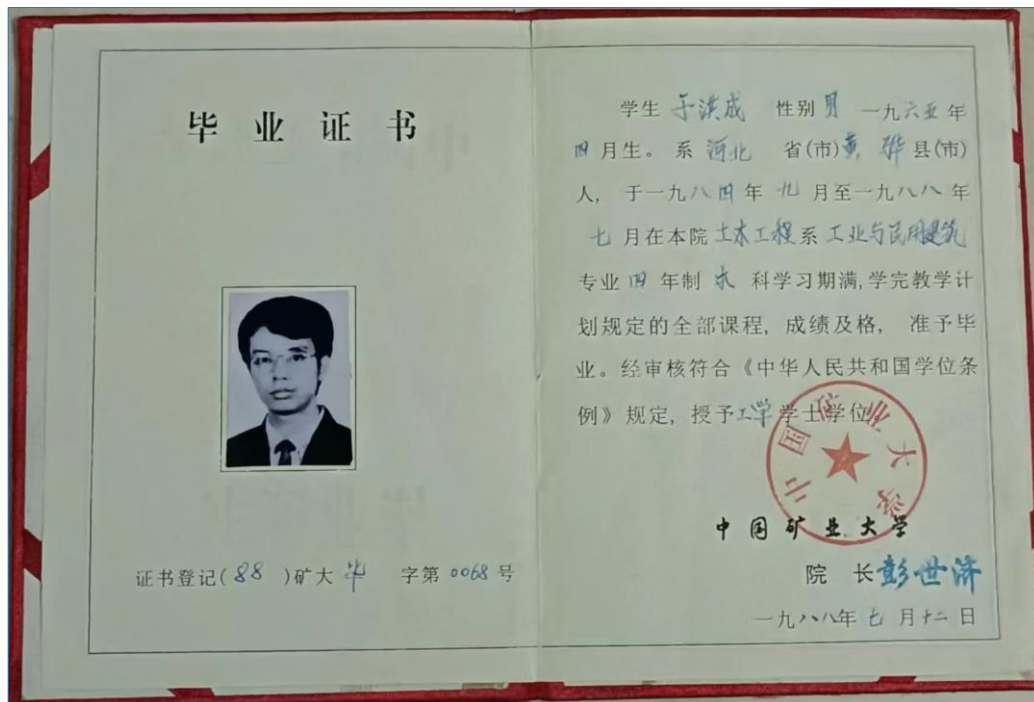 毕业证书
证书登记(88)矿大毕 字第0068号
学生 于洪成 性别男 一九六五年
四月生。系 河北 省(市)黄骅县(市)
人, 于一九八四年 九 月至一九八八年
七月在本院土木工程系工业与民用建筑
专业四年制 本 科学习期满,学完教学计
划规定的全部课程, 成绩及格, 准予毕
业。经审核符合《中华人民共和国学位条
例》规定, 授予工学学士学位
中国矿业大学
中国矿业大学
院 长彭世济
一九八八年七月十二日